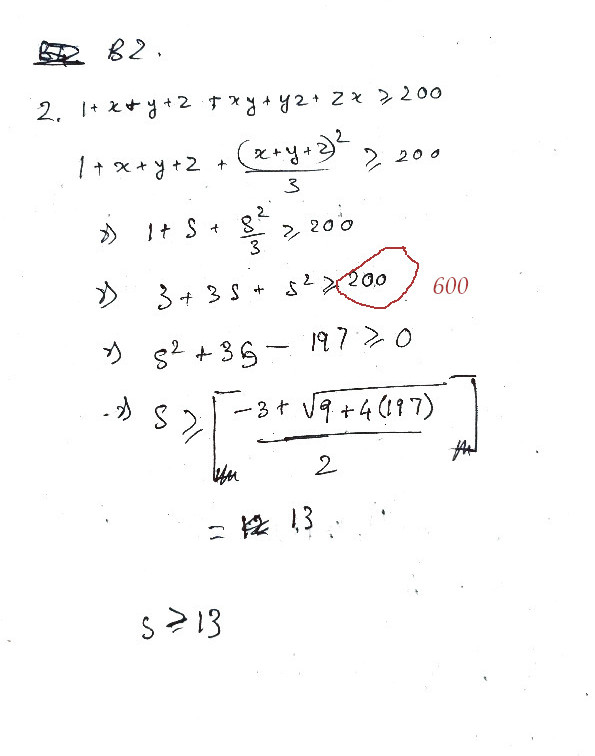 B2.
2. 1 + x + y + z + xy + yz + zx ⩾ 200
1 + x + y + z + (x+y+z)²/3 ⩾ 200
⇒ 1 + S + S²/3 ⩾ 200
⇒ 3 + 3S + S² ⩾ 200 600
⇒ S² + 3S − 197 ⩾ 0
⇒ S ⩾ ⌈(−3 + √(9 + 4(197)))/2⌉
= 13
S ⩾ 13